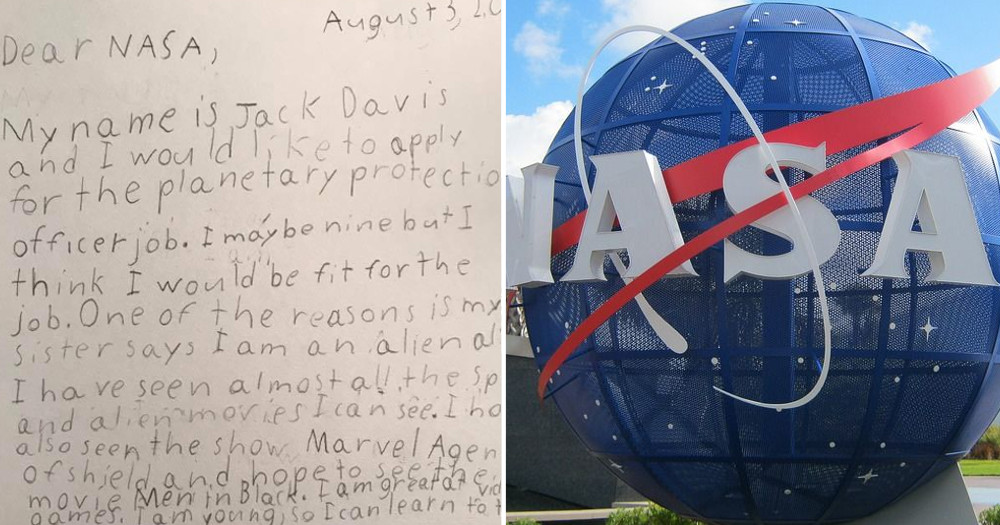 August 3, 20
Dear NASA,
My name is Jack Davis
and I would like to apply
for the planetary protectio
officer job. I maybe nine but I
think I would be fit for the
job. One of the reasons is my
sister says I am an alien al
I have seen almost all the sp
and alien movies I can see. I ha
also seen the show Marvel Agen
of shield and hope to see the
movie Men in Black. I am great at vid
games. I am young, so I can learn to t
NASA